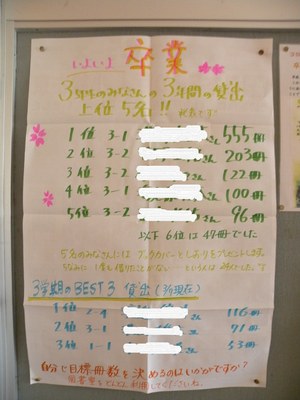 いよいよ 卒業
3年生のみなさんの3年間の貸出
上位5名!! 発表です
1位 3-1 さん 555冊
2位 3-2 さん 203冊
3位 3-2 さん 122冊
4位 3-1 さん 100冊
5位 3-2 さん 96冊
以下 6位は49冊でした
5名のみなさんには ブックカバーとしおりをプレゼントします。
ちなみに 1冊も借りたことがない…という人は
3学期のBEST3 貸出(3/ 現在)
1位 2-4 116冊
2位 3-1 さん 91冊
3位 1-1 さん 53冊
自分で目標冊数を決めるのはいかがですか?
図書室をどんどん利用してくださいね。